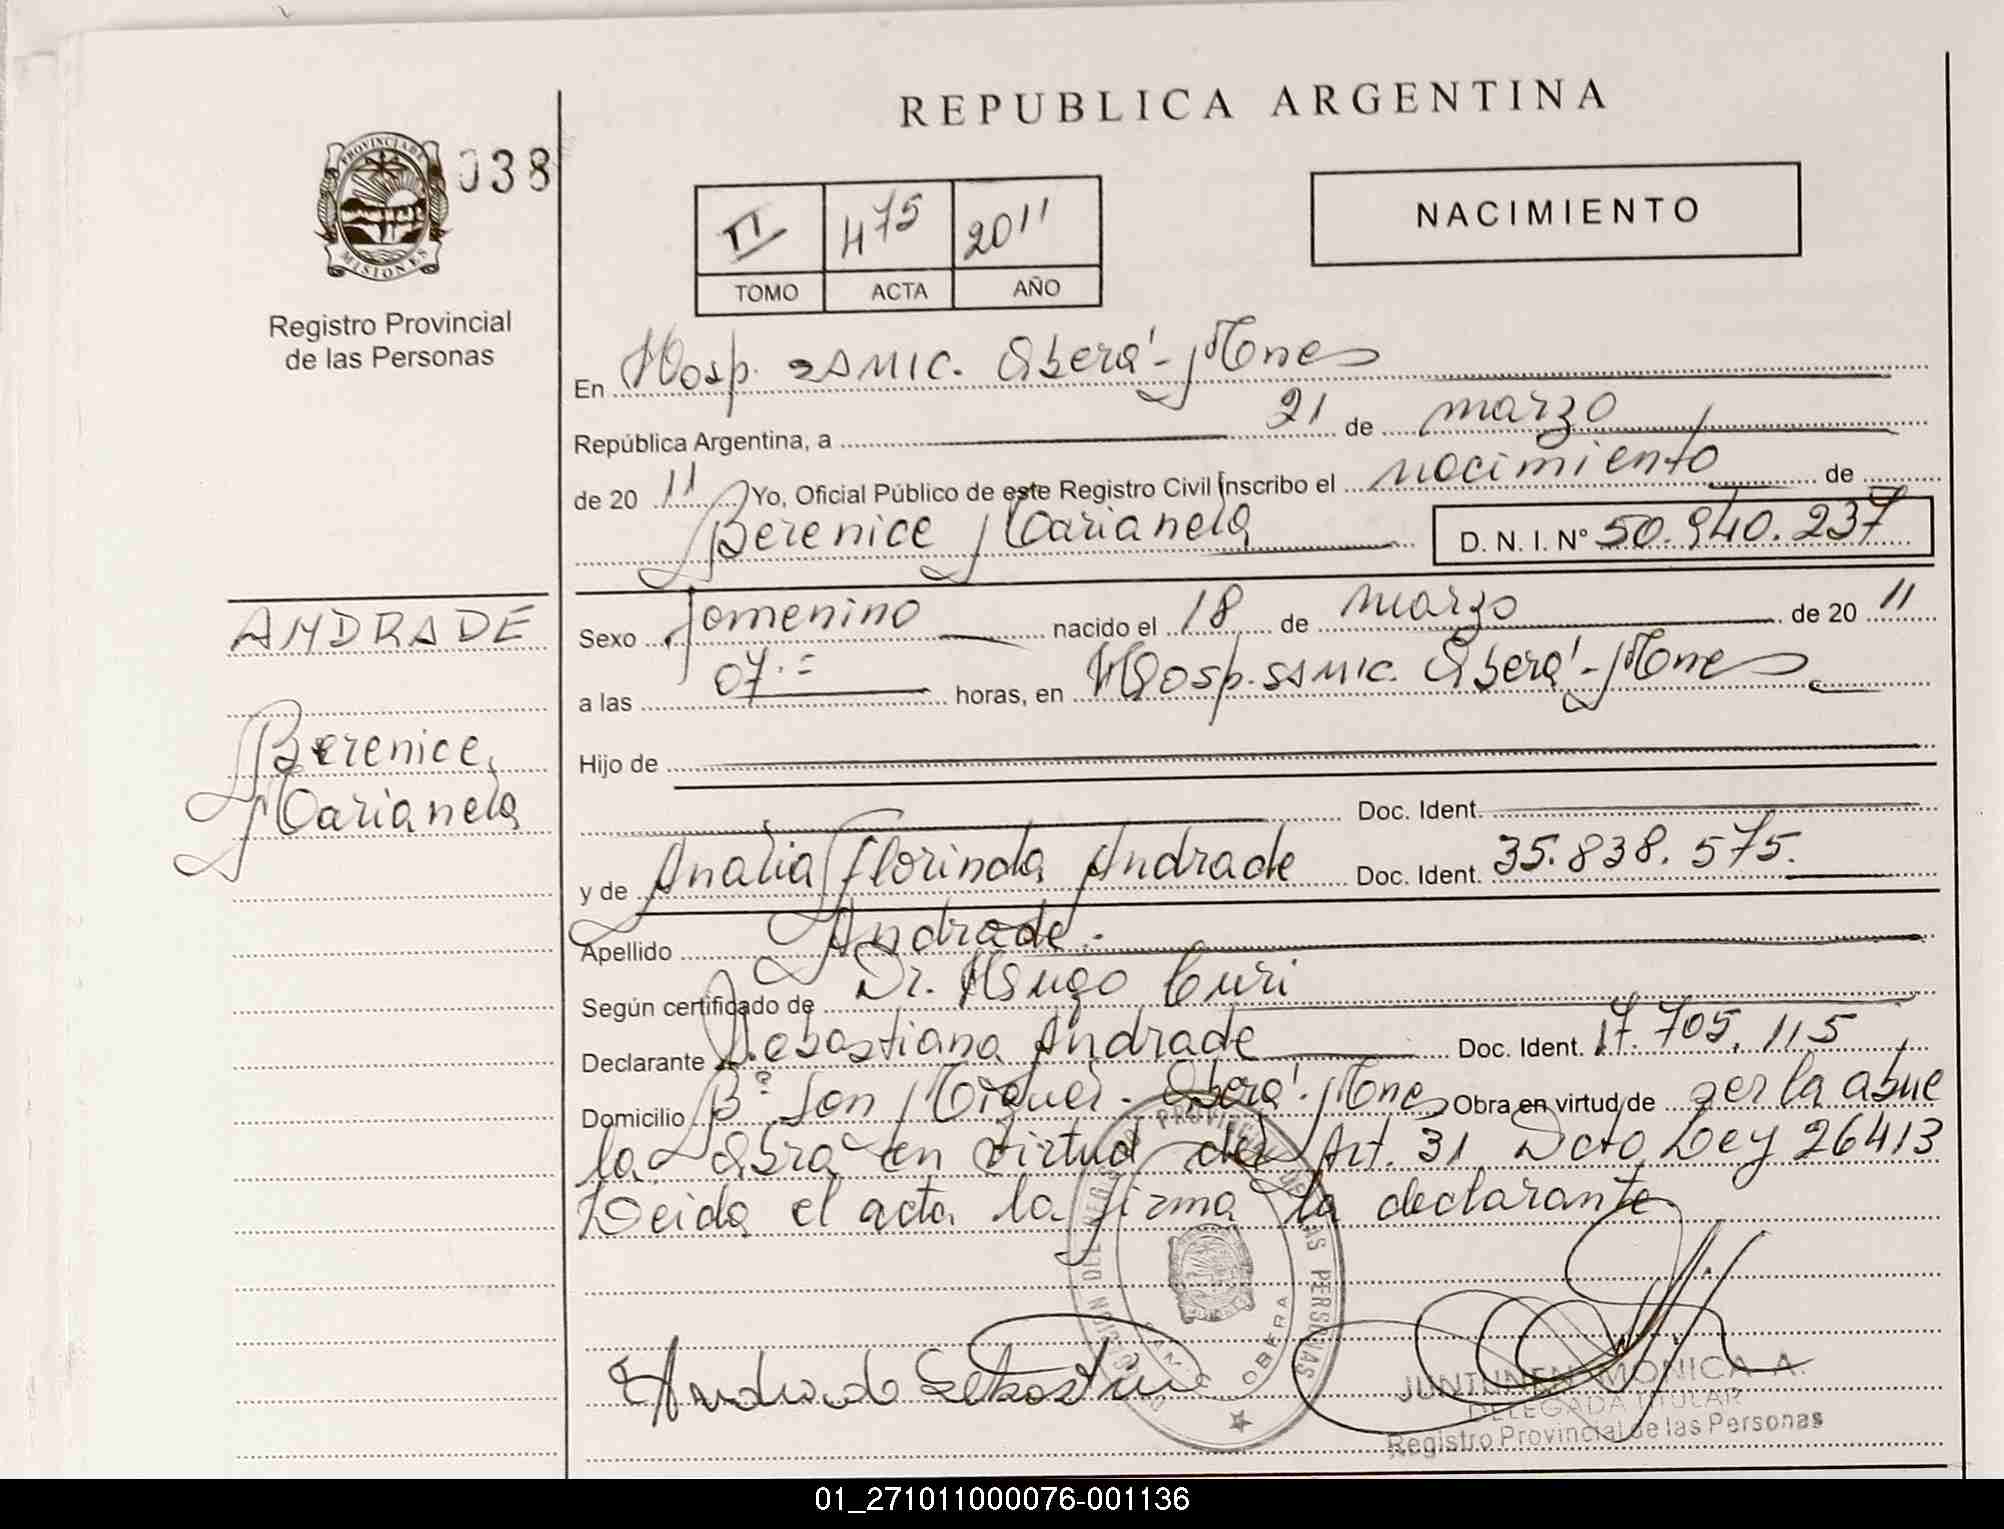 REPUBLICA ARGENTINA
PROVINCIA DE MISIONES
038
Registro Provincial
de las Personas
II 475 2011
TOMO ACTA AÑO
NACIMIENTO
En Hosp. SAMIC. Oberá - Mnes
República Argentina, a 21 de marzo
de 20 11 Yo, Oficial Público de este Registro Civil inscribo el nacimiento de
Berenice Marianela D. N. I. Nº 50.940.237
ANDRADE
Berenice
Marianela
Sexo femenino nacido el 18 de marzo de 20 11
a las 07.= horas, en Hosp. SAMIC. Oberá - Mnes
Hijo de
Doc. Ident.
y de Analia Florinda Andrade Doc. Ident. 35.838.575.
Apellido Andrade.
Según certificado de Dr. Hugo Curi
Declarante Sebastiana Andrade Doc. Ident. 17.705.115
Domicilio Bº San Miguel - Oberá - Mnes Obra en virtud de ser la abue
la - Obra en virtud del Art. 31 Dcto Ley 26413
Leida el acta la firma la declarante
Andrade Sebastiana
OBERA
JUNTUNEN MONICA A.
DELEGADA TITULAR
Registro Provincial de las Personas
01_271011000076-001136